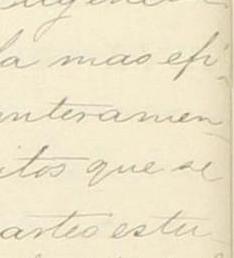 la mas efi-
nteramen
itos que se
artes estu-